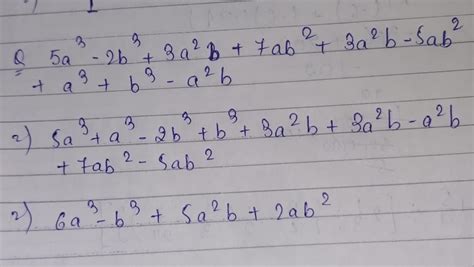 Q 5a³ - 2b³ + 3a²b + 7ab² + 3a²b - 5ab²
+ a³ + b³ - a²b
2) 5a³ + a³ - 2b³ + b³ + 3a²b + 3a²b - a²b
+ 7ab² - 5ab²
2) 6a³ - b³ + 5a²b + 2ab²